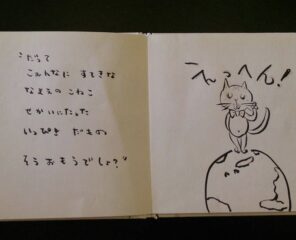 "だって
こぉんなに すてきな
なまえの こねこ
せかいにたった
いっぴき だもの
そうおもうでしょ?"
えっへん!